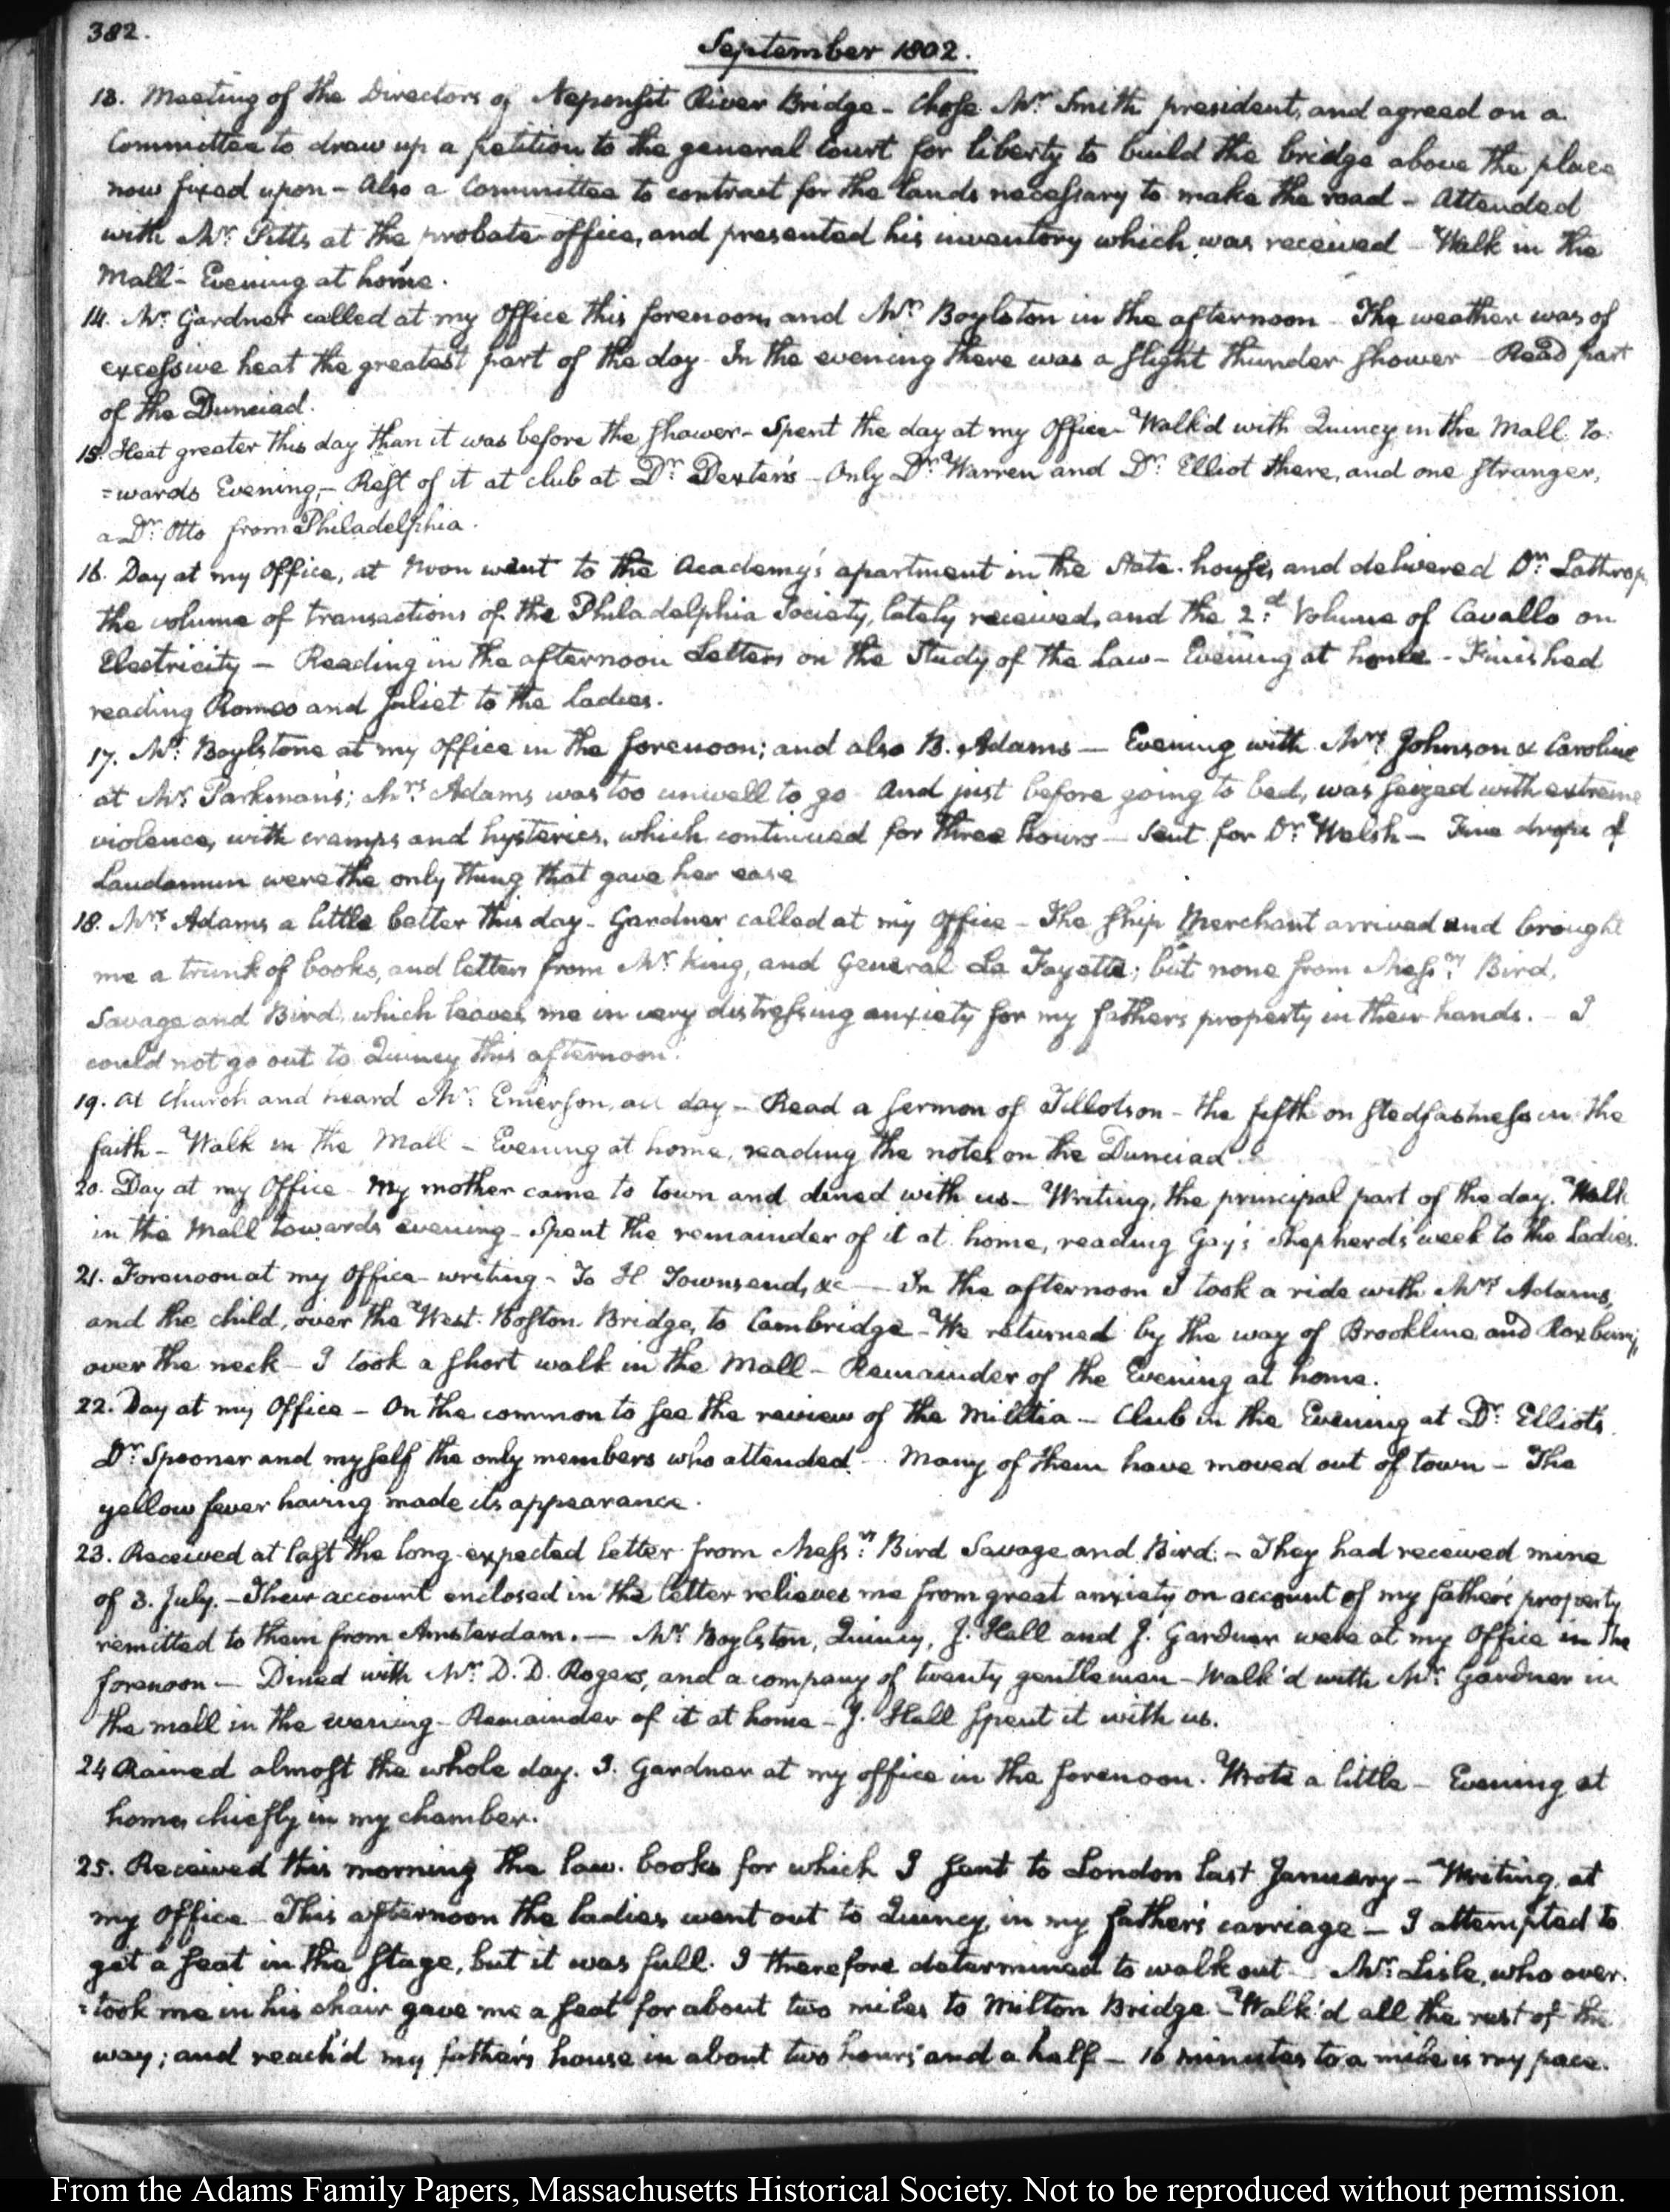 382.
September 1802.
13. Meeting of the Directors of Neponsit River Bridge - Chose Mr. Smith president, and agreed on a
Committee to draw up a petition to the general Court for liberty to build the bridge above the place
now fixed upon - Also a Committee to contract for the lands necessary to make the road - Attended
with Mr. Pitts at the probate-office, and presented his inventory which was received - Walk in the
Mall - Evening at home.
14. Mr. Gardner called at my Office this forenoon, and Mr. Boylston in the afternoon - The weather was of
excessive heat the greatest part of the day - In the evening there was a slight thunder shower - Read part
of the Dunciad.
15. Heat greater this day than it was before the shower - Spent the day at my Office - Walk'd with Quincy in the Mall to:
=wards Evening, - Rest of it at club at Dr. Dexter's - Only Dr. Warren and Dr. Elliot there, and one stranger,
a Dr. Otto from Philadelphia.
16. Day at my Office, at Noon went to the Academy's apartment in the State-house, and delivered Dr. Lathrop,
the volume of transactions of the Philadelphia Society, lately received, and the 2.d Volume of Cavallo on
Electricity - Reading in the afternoon Letters on the Study of the Law - Evening at home - Finished
reading Romeo and Juliet to the Ladies.
17. Mr. Boylstone at my Office in the forenoon; and also B. Adams - Evening with Mrs. Johnson & Caroline
at Mr. Parkman's; Mrs. Adams was too unwell to go - And just before going to bed, was seized with extreme
violence, with cramps and hysterics, which continued for three hours - Sent for Dr. Welsh - drops of
Laudanum were the only thing that gave her ease
18. Mrs. Adams a little better this day - Gardner called at my Office - The ship Merchant arrived and brought
me a trunk of books, and letters from Mr. King, and General La Fayette; but none from Messrs. Bird,
Savage and Bird, which leaves me in very distressing anxiety for my fathers property in their hands. - I
could not go out to Quincy this afternoon.
19. At Church and heard Mr. Emerson, all day - Read a sermon of Tillotson - the fifth on stedfastness in the
faith - Walk in the Mall - Evening at home, reading the notes on the Dunciad.
20. Day at my Office - My mother came to town and dined with us - Writing, the principal part of the day. Walk
in the Mall towards evening - Spent the remainder of it at home, reading Gay's Shepherd's week to the Ladies.
21. Forenoon at my Office - writing - To H Townsend, &c - In the afternoon I took a ride with Mrs. Adams,
and the child, over the West-Boston Bridge, to Cambridge - We returned by the way of Brookline and Roxbury,
over the neck - I took a short walk in the Mall - Remainder of the Evening at home.
22. Day at my Office - On the common to see the review of the Militia - Club in the Evening at Dr. Elliot's.
Dr. Spooner and myself the only members who attended - Many of them have moved out of town - The
yellow fever having made its appearance.
23. Received at last the long-expected letter from Messrs. Bird Savage and Bird. - They had received mine
of 3. July. - Their account enclosed in the letter relieves me from great anxiety on account of my father's property
remitted to them from Amsterdam. - Mr. Boylston, Quincy, J. Hall and J. Gardner were at my Office in the
forenoon - Dined with Mr. D. D. Rogers, and a company of twenty gentlemen - Walk'd with Mr. Gardner in
the mall in the evening - Remainder of it at home - J. Hall spent it with us.
24 Rained almost the whole day. J. Gardner at my office in the forenoon. Wrote a little - Evening at
home, chiefly in my chamber.
25. Received this morning the law-books for which I sent to London last January - Writing at
my Office - This afternoon the ladies went out to Quincy, in my father's carriage - I attempted to
get a seat in the stage, but it was full. I therefore determined to walk out - Mr. Lisle, who over:
=took me in his chair gave me a seat for about two miles to Milton Bridge - Walk'd all the rest of the
way; and reach'd my father's house in about two hours and a half - 16 minutes to a mile is my pace.
From the Adams Family Papers, Massachusetts Historical Society. Not to be reproduced without permission.